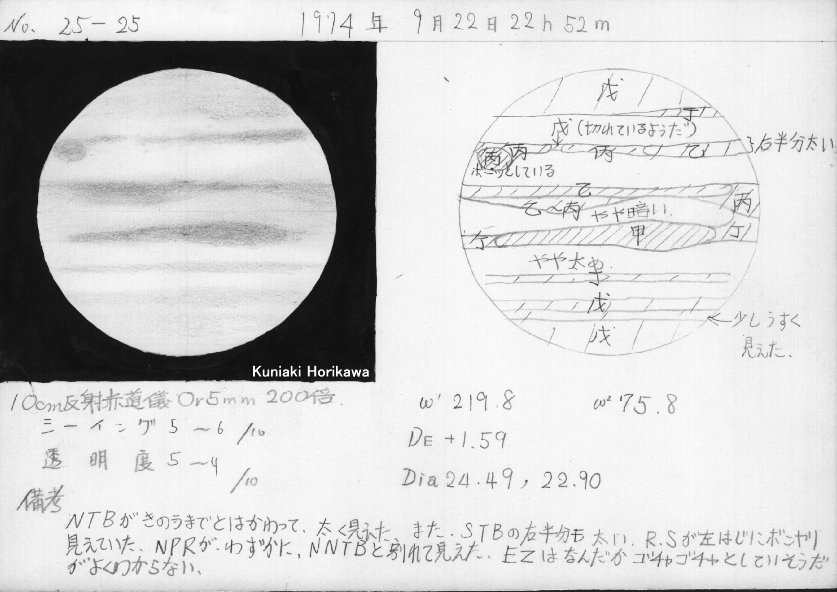 No. 25-25 1974年 9月22日22h52m
戊
丁
戊(切れているようだ)
丙 丙 丙 乙 }右半分太い
ボーッとしている
乙
乙〜丙 やや暗い 丙
丁 甲 丁
やや太め
丁
戊
戊 ←少しうすく
見えた.
Kuniaki Horikawa
10cm反射赤道儀 Or5mm 200倍.
シーイング 5〜6/10
透明度 5〜4/10
ω¹ 219.8 ω² 75.8
DE +1.59
Dia 24.49, 22.90
備考
NTBがきのうまでとはかわって、太く見えた. また、STBの右半分も太い. R.Sが左はじにボンヤリ
見えていた. NPRが、わずかに、NNTBと別れて見えた. EZはなんだかゴチャゴチャとしていそうだ
がよくわからない.